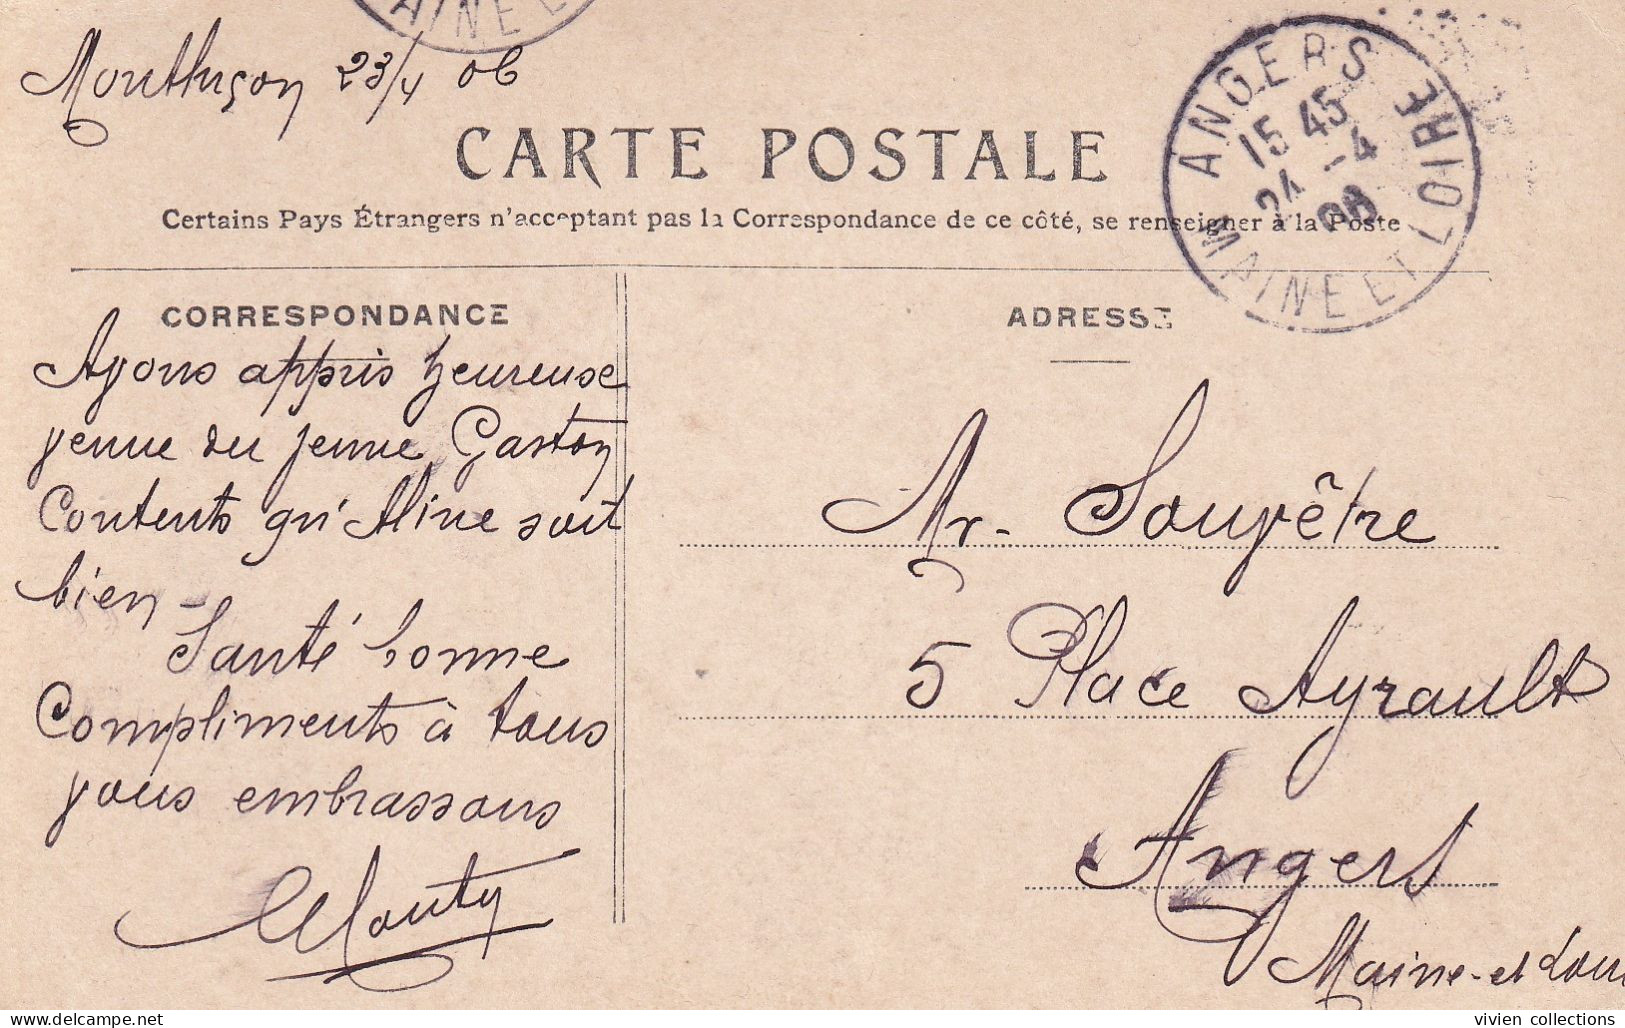 AINE E
Montluçon 23/4 06
ANGERS
15 45
24 -4
06
MAINE ET LOIRE
CARTE POSTALE
Certains Pays Étrangers n'acceptant pas la Correspondance de ce côté, se renseigner à la Poste
CORRESPONDANCE
Ayons appris heureuse
venue du jeune Gaston
Contents qu'Aline soit
bien -
Santé bonne
Compliments à tous
vous embrassons
ADRESSE
Mr. Souvêtre
5 Place Ayrault
Angers
Maine-et-Loire
vivien collections